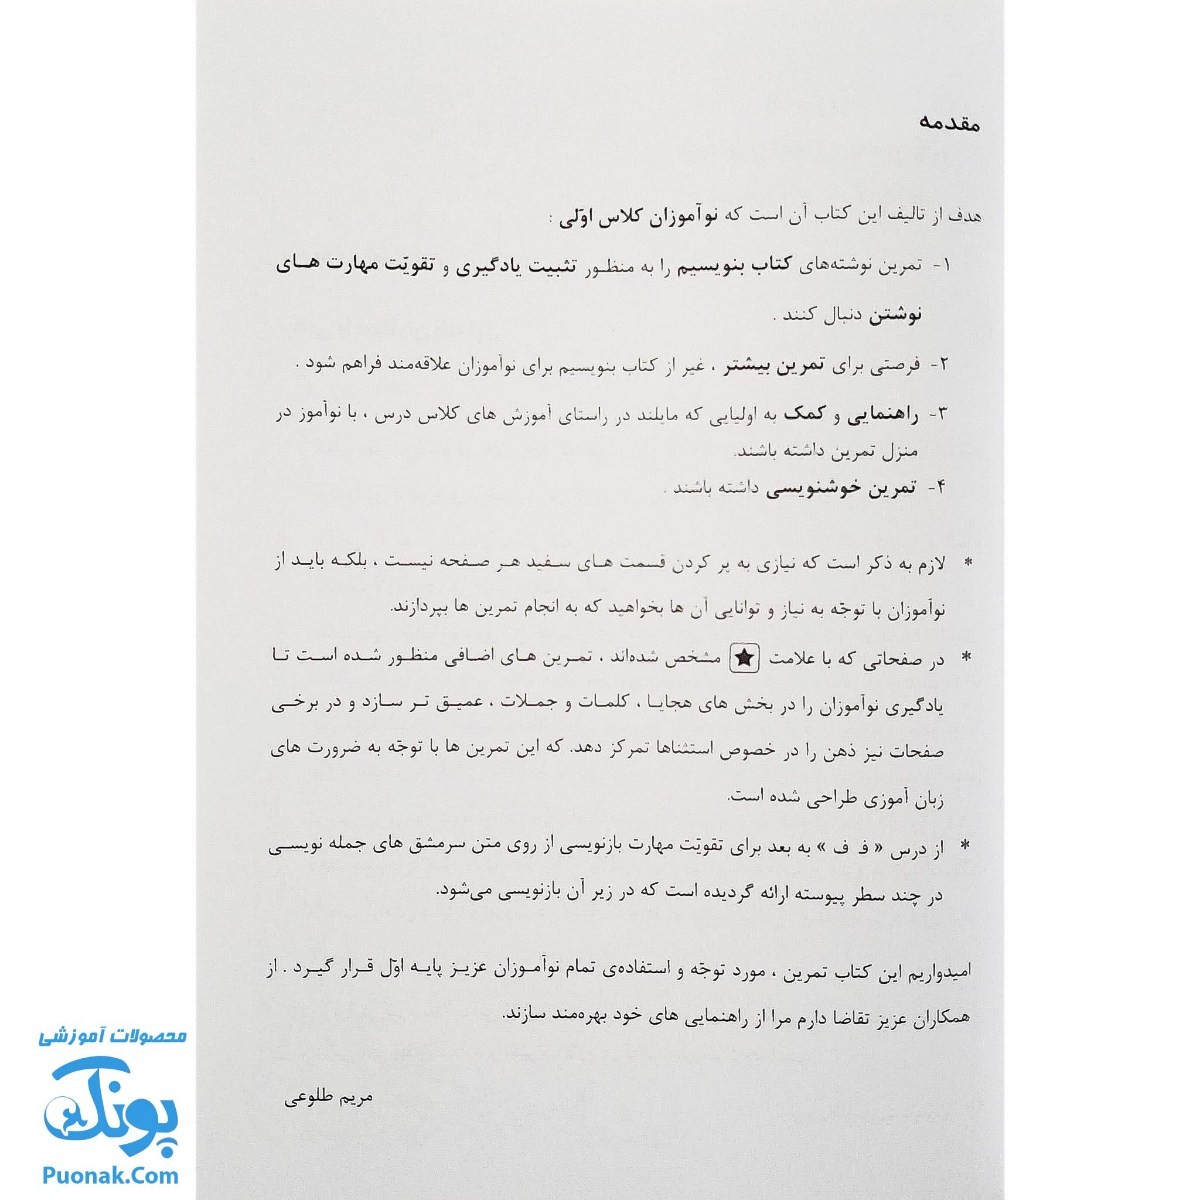 مقدمه
هدف از تالیف این کتاب آن است که نوآموزان کلاس اوّلی :
۱- تمرین نوشته‌های کتاب بنویسیم را به منظـور تثبیت یادگیری و تقویّت مهارت هـای
نوشتن دنبال کنند .
۲- فرصتی برای تمرین بیشتر ، غیر از کتاب بنویسیم برای نوآموزان علاقه‌مند فراهم شود .
۳- راهنمایی و کمک به اولیایی که مایلند در راستای آموزش های کلاس درس ، با نوآموز در
منزل تمرین داشته باشند.
۴- تمرین خوشنویسی داشته باشند .
* لازم به ذکر است که نیازی به پر کردن قسمت هـای سـفید هـر صـفحه نیسـت ، بلکـه بایـد از
نوآموزان با توجّه به نیاز و توانایی آن ها بخواهید که به انجام تمرین ها بپردازند.
* در صفحاتی که با علامت ★ مشخص شده‌اند ، تمـرین هـای اضـافی منظـور شـده اسـت تـا
یادگیری نوآموزان را در بخش های هجایـا ، کلمـات و جمـلات ، عمیـق تـر سـازد و در برخـی
صفحات نیز ذهن را در خصوص استثناها تمرکز دهد. که این تمرین ها با توجّه به ضرورت های
زبان آموزی طراحی شده است.
* از درس « فـ ف » به بعد برای تقویّت مهارت بازنویسی از روی متن سرمشق های جمله نویسـی
در چند سطر پیوسته ارائه گردیده است که در زیر آن بازنویسی می‌شود.
امیدواریم این کتاب تمرین ، مورد توجّه و استفاده‌ی تمام نوآمـوزان عزیـز پایـه اوّل قـرار گیـرد . از
همکاران عزیز تقاضا دارم مرا از راهنمایی های خود بهره‌مند سازند.
مریم طلوعی
محصولات آموزشی
پونک
Puonak.Com